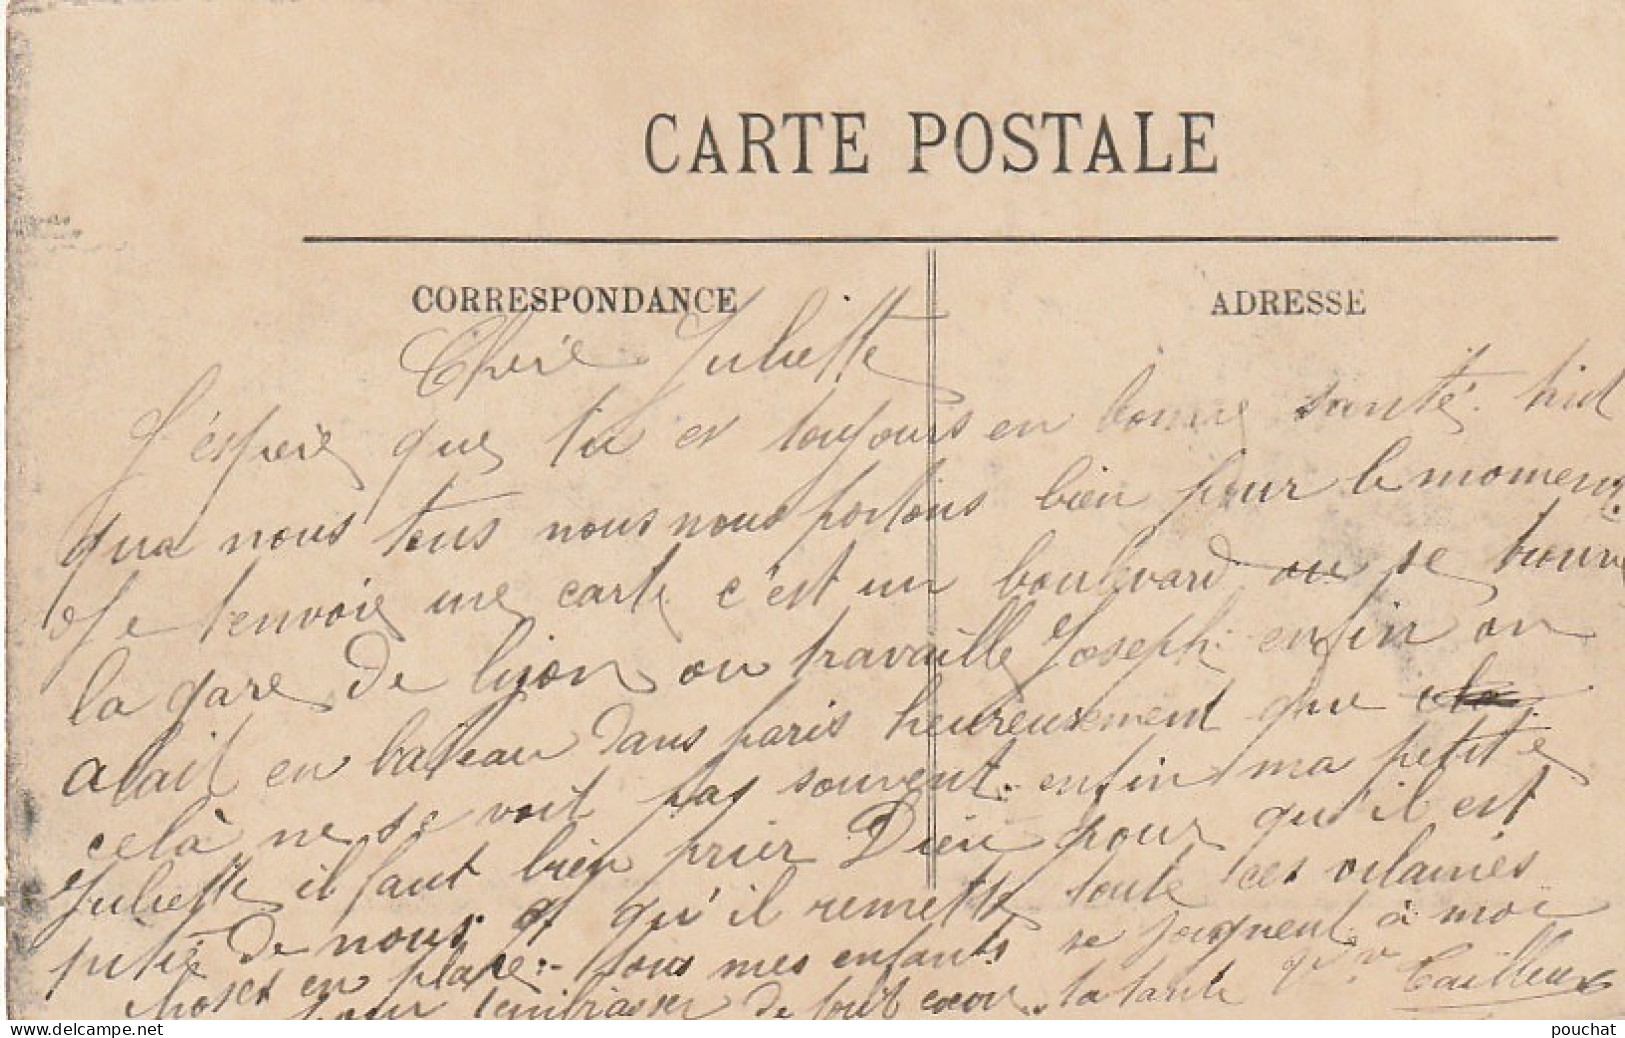 CARTE POSTALE
CORRESPONDANCE
ADRESSE
Chère Juliette
J'espère que tu es toujours en bonne santé.
que nous tous nous nous portons bien pour le moment.
Je t'envoie une carte c'est un boulevard ou se trouve
la gare de lyon ou travaille Joseph enfin on
alait en bateau dans paris heureusement que
celà ne se voit pas souvent. enfin ma petite
Juliette il faut bien prier Dieu pour qu'il est
pitié de nous et qu'il remette toute ces vilaines
choses en place. tous mes enfants se joignent à moi
pour t'embrasser de tout coeur. ta tante Tailleur
pouchat
www.delcampe.net